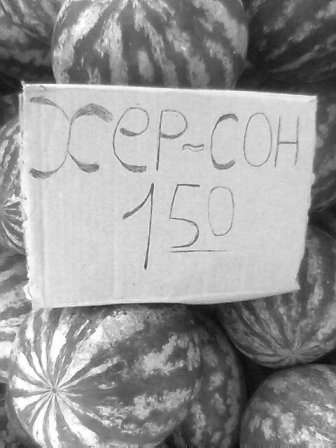 ХЕР~СОН
1 50